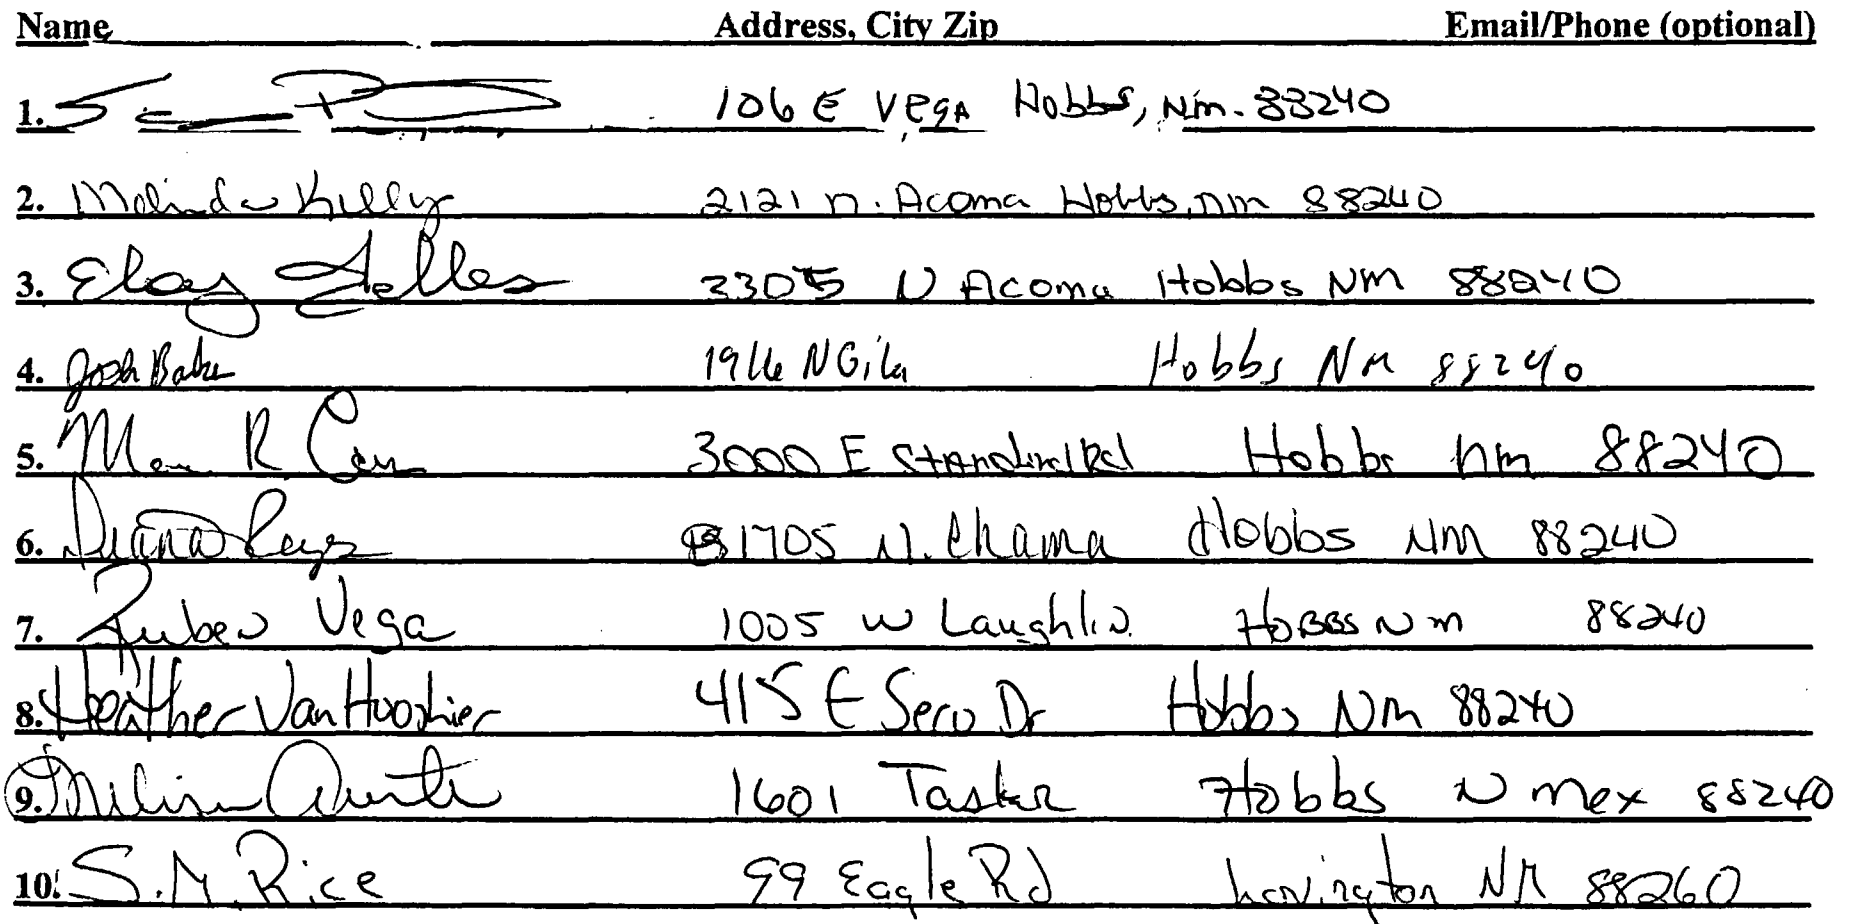 Name Address, City Zip Email/Phone (optional)
1. 106 E Vega Hobbs, Nm. 88240
2. Melinda Kelly 2121 n. Acoma Hobbs, nm 88240
3. Eloy Telles 3305 N Acoma Hobbs NM 88240
4. Josh Baker 1916 N Gila Hobbs NM 88240
5. R 3000 E Standard Rd Hobbs nm 88240
6. Diana Reyes 1705 N. Chama Hobbs NM 88240
7. Ruben Vega 1005 W Laughlin Hobbs Nm 88240
8. Heather VanHooshier 415 E Seco Dr Hobbs NM 88240
9. 1601 Tasker Hobbs N Mex 88240
10. S.M. Rice 99 Eagle Rd Lovington NM 88260